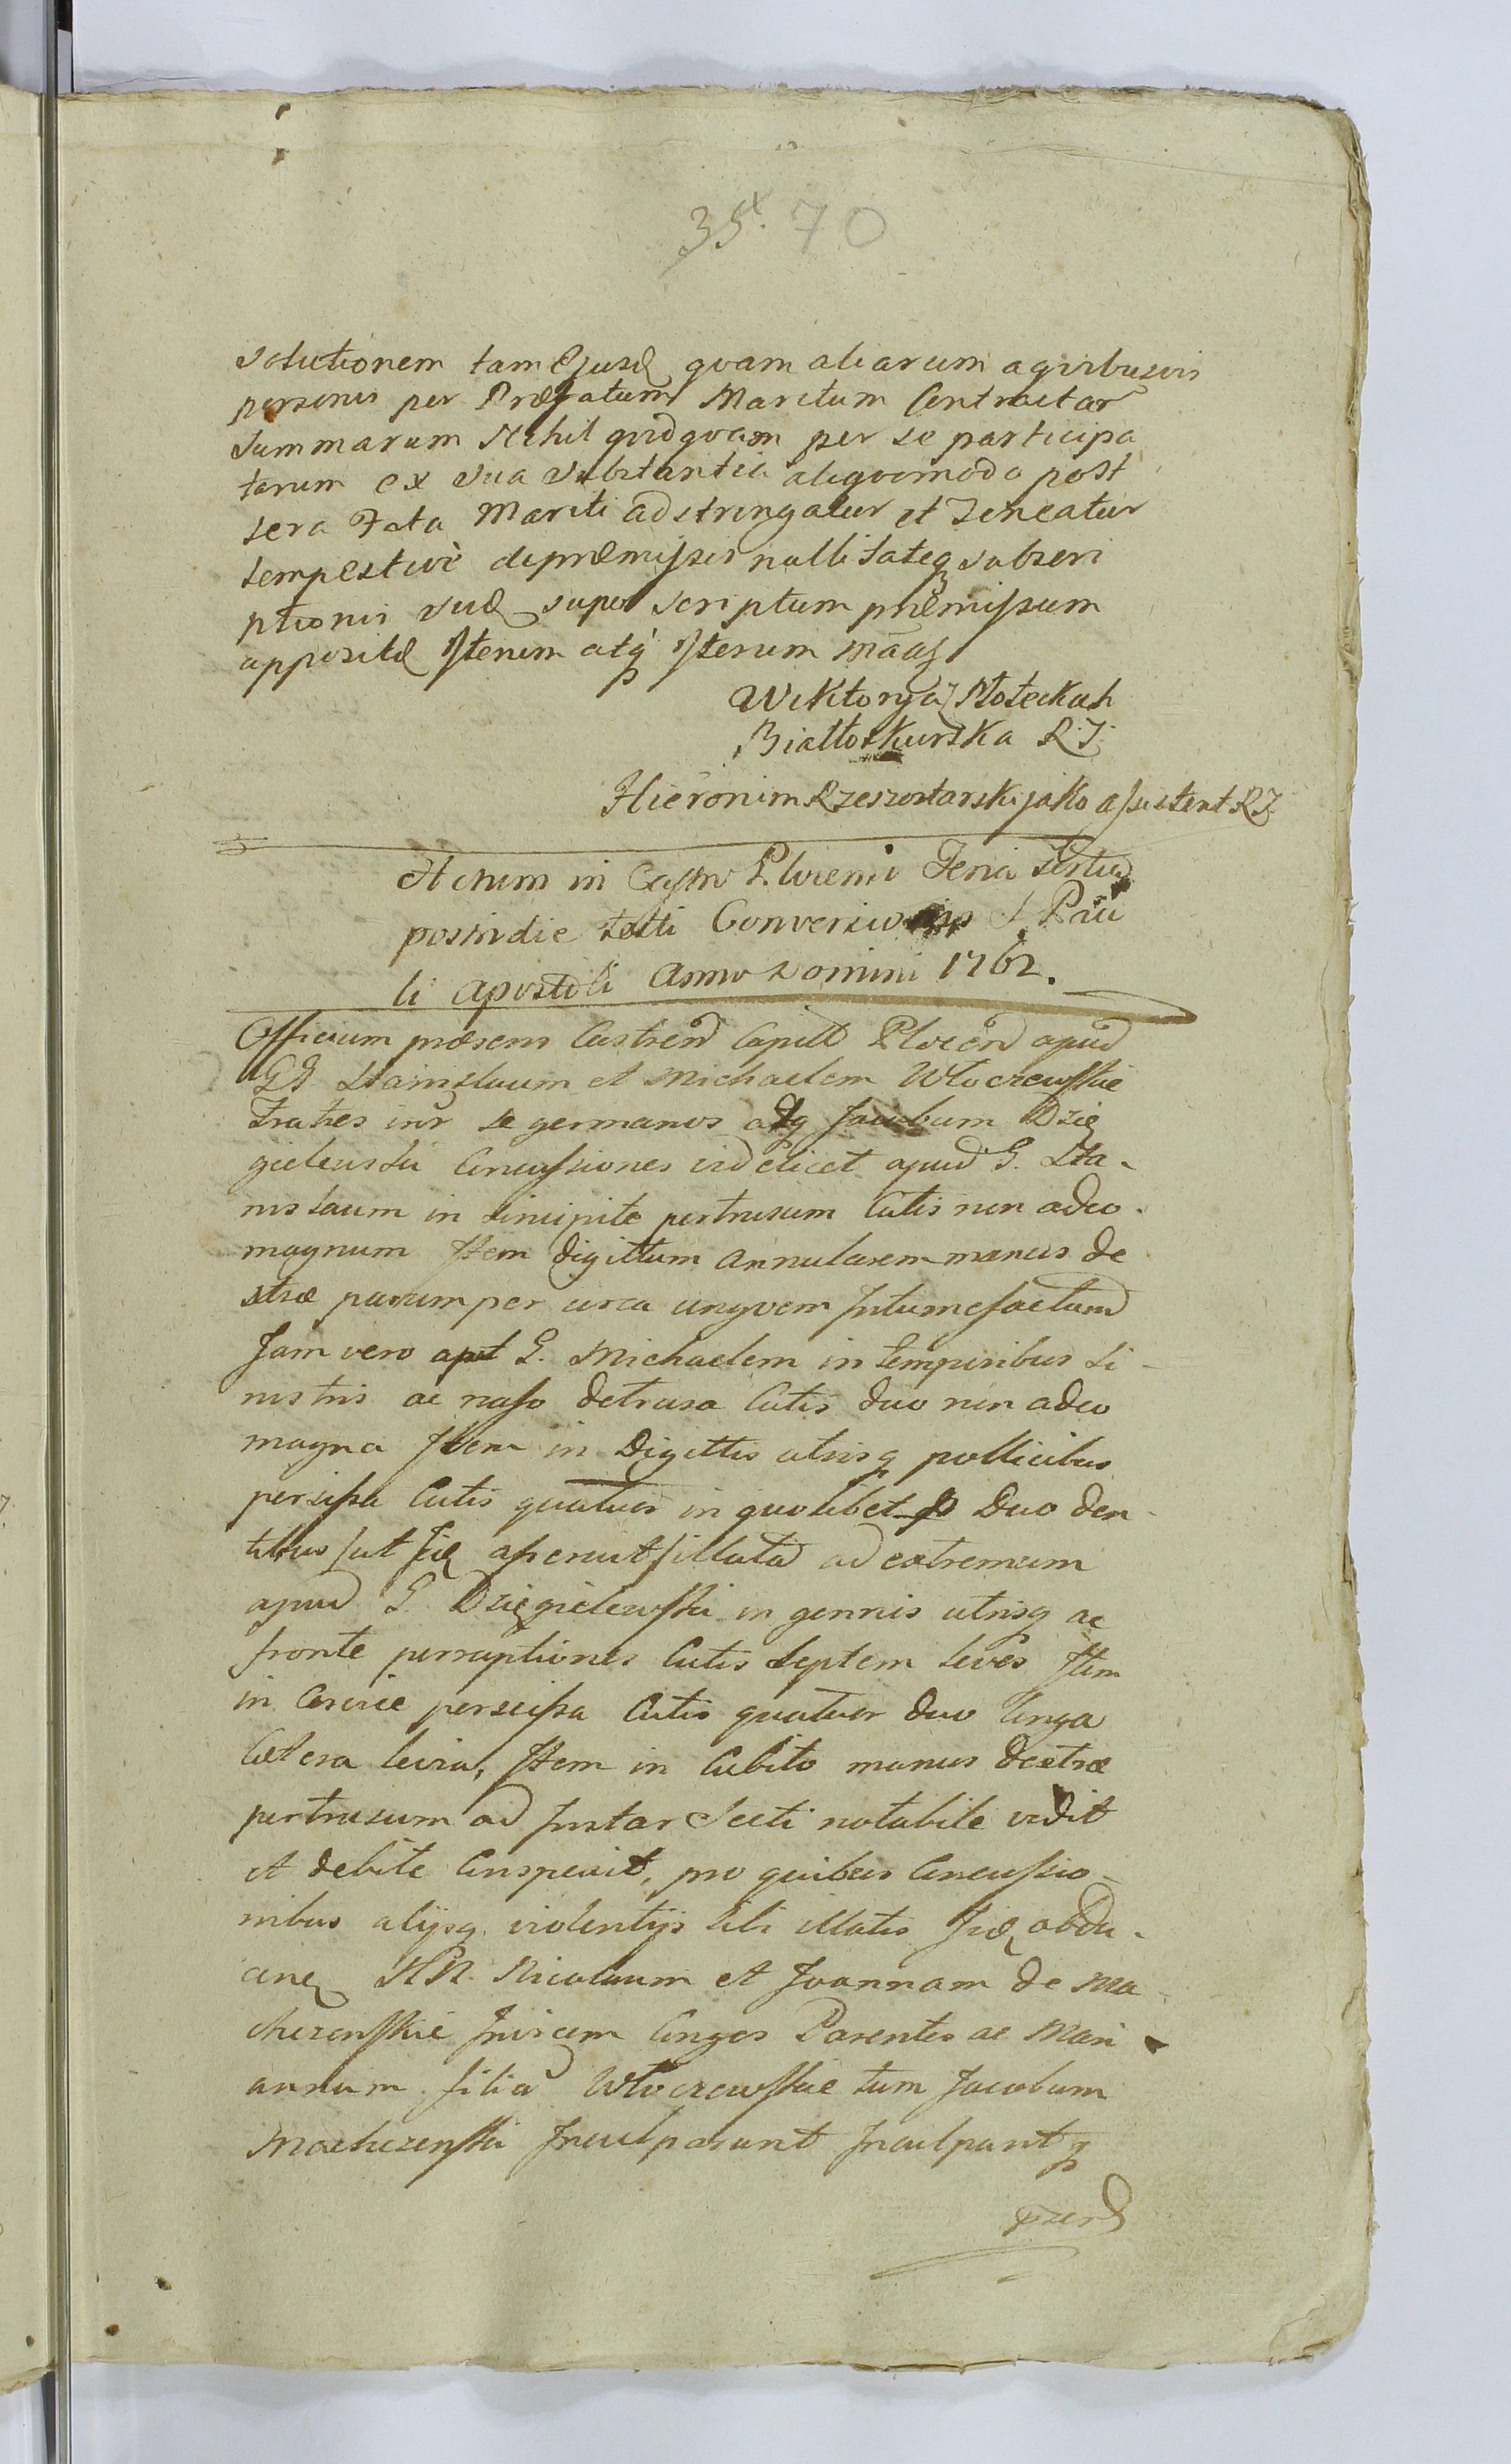 35. 70
solutionem tam Ejusd quam aliarum a qvibusvis
personis per Præfatum Maritum Contractar
summarum Nihil qvidqvam per se participa
tarum ex sua substantia aliqvomodo post
sera Fata Mariti adstringatur et Teneatur
tempestivè de præmissis nullitateq subscri
ptionis suæ super scriptum præmissum
appositæ Iterum atq Iterum
Wiktorya Płoteckah
Białłoskurska
Hieronim Rzeszotarski jako assistent
Actum in Castro Plocensi Feria Tertia
postridie festi Conversionis S. Pau
li Apostoli Anno Domini 1762.
Officium præsens Castren Capitl Plocen apud
GG Stanisluum et Michaelem Włoczewskie
Fratres inr se germanos atq Jacobum Dzię
gielewski Concussiones videlicet apud G. Sta-
nislaum in sincipite pertrusum Cutis non adeo
magnum Item digittum annularem manus de
xtræ parumper circa ungvem Intumefactum
Jam vero apd G. Michaelem in temporibus si-
nistris ac naso detrusa Cutis duo non adeo
magna Item in Digittis utrisq pollicibus
percissa Cutis quatuor in quolibet p Duo den-
tibus /ut Iid asserunt/ illata ad extremum
apud G. Dzięgielewski in gennis utrisq ac
fronte perruptiones Cutis septem leves Item
in Cervice percissa Cutis quatuor duo longa
Cætera levia, Item in Cubito manus dextræ
pertrusum ad Instar Secti notabile vidit
et debite Conspexit, pro quibus Concussio-
nibus alijsq violentijs sibi illatis Iid addu-
cen NN. Nicolaum et Joannam de Ma-
cherenskie Invicem Conges Parentes ac Mari
annam filia Włoczewskie tum Jacobum
Macherenski Inculparunt Inculpantq